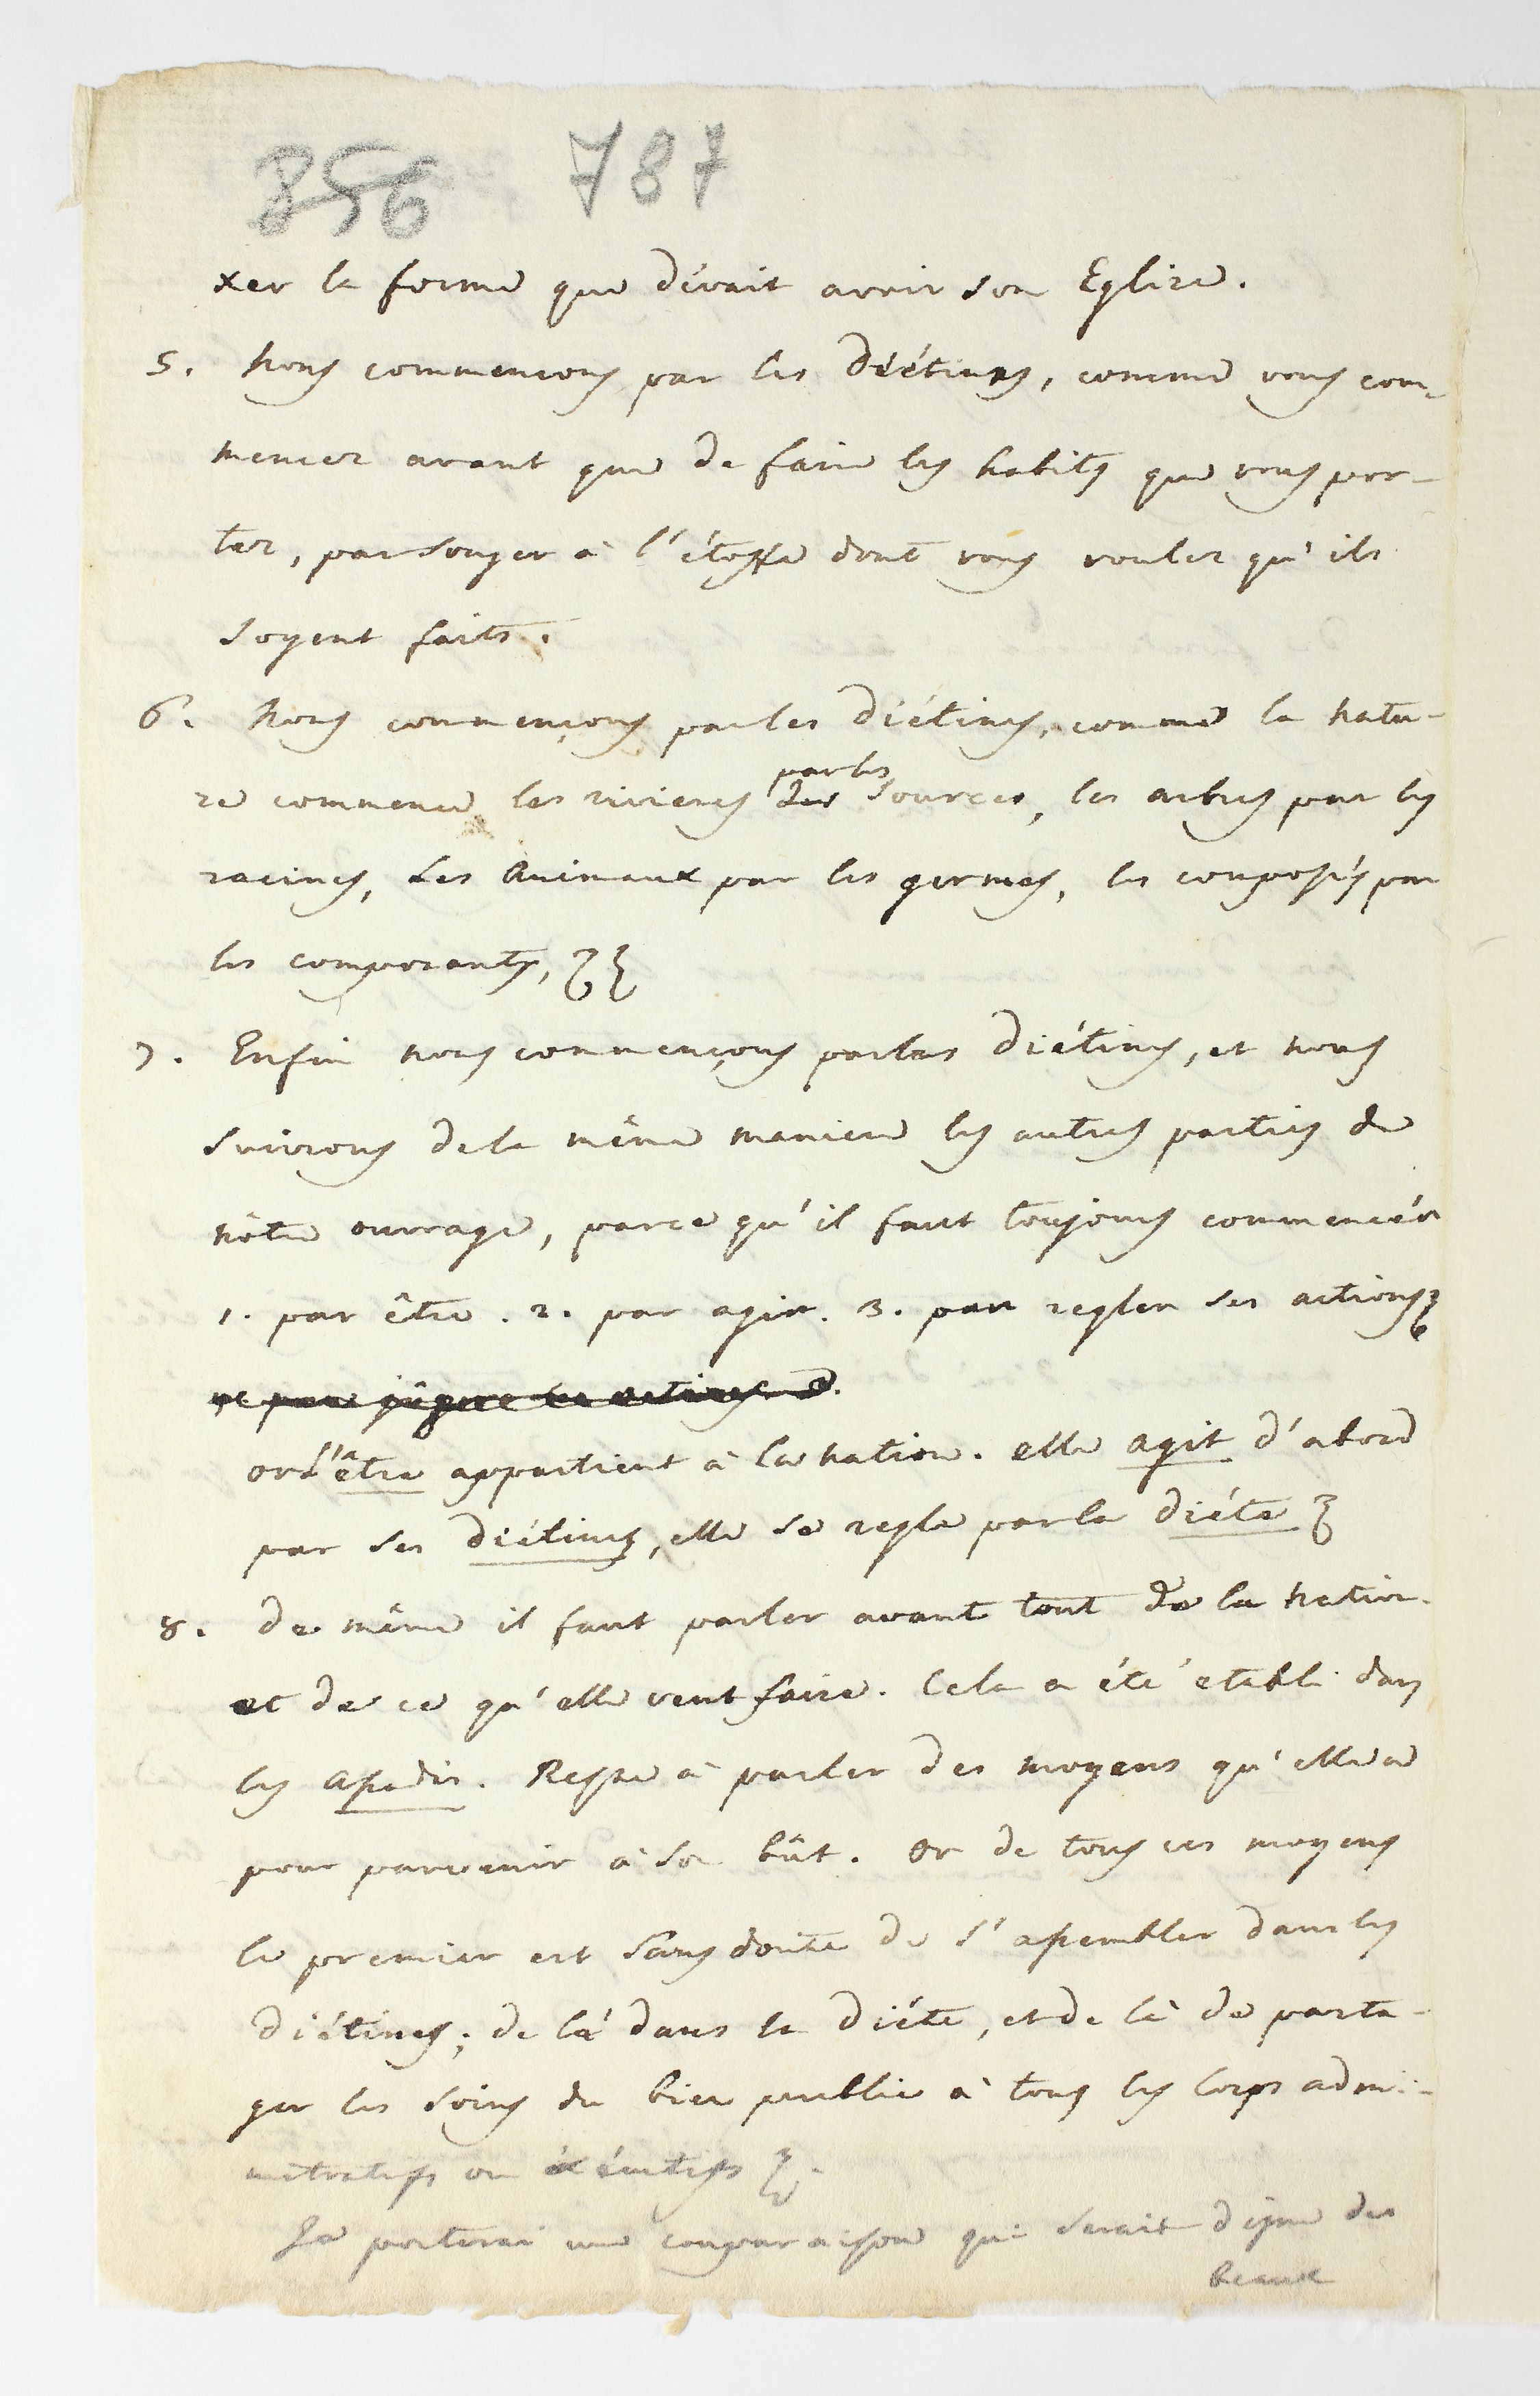 856 787
xer la forme que dévait avoir son Eglise.
5. Nous commencons par les Diétines, comme vous com-
mencez avant que de faire les habits que vous por-
tez, par songer à l'étoffe dont vous voulez qu'ils
soyent faits.
6. Nous commençons par les Diétines, comme la natu-
re commence les rivieres par les sources, les arbres par les
racines, les Animaux par les germes, les composés par
les composants,
7. Enfin nous commençons par les Diétines, et nous
suivrons de la même maniere les autres parties de
nôtre ouvrage, parce qu'il faut toujours commencér
1. par être. 2. par agir. 3. par regler ses actions
or l'être appartient à la nation. elle agit d'abord
par ses diétines, elle se regle par la diéte
8. de même il faut parler avant tout de la nation.
et de ce qu'elle veut faire. Cela a été etabli dans
les . Reste à parler des moyens qu'elle a
pour parvenir à son bût. Or de tous ces moyens
le premier est sans doute de s'assembler dans les
diétines; de là dans la diéte, et de là de parta-
ger les soins du bien public à tous les corps admi-
nistratifs ou éxécutifs
Je porterai une comparaison qui serait digne des
beaux